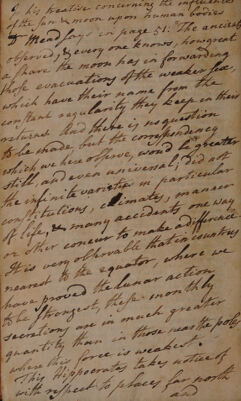 his treatise concerning the influences
of the sun & moon upon human bodies
Dr Mead says in page 51: The ancients
observed, & every one knows, how great
a share the moon has in forwarding
those evacuations of the weaker sex,
which have their name from the
constant regularity they keep in their
returns And there is no question
to be made, but the correspondency
which we here observe, would be greater
still, and even universal; did not
the infinite varieties in particular
constitutions, climates, manner
of life, & many accidents one way
or other concur to make a difference
It is very observable that in countries
nearest to the equator, where we
have proved the lunar action
to be strongest, these monthly
secretions are in much greater
quantity than in those near the poles
where this force is weakest.
This Hippocrates takes notice of
with respect to places far north
and